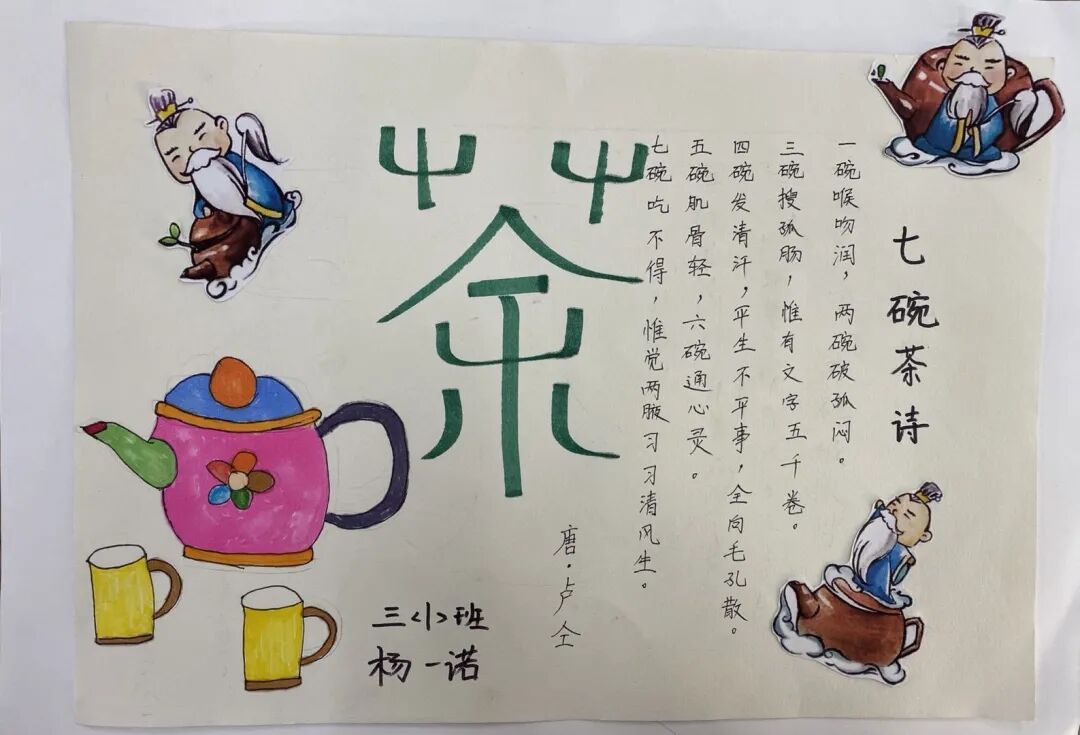 七碗茶诗
一碗喉吻润，两碗破孤闷。
三碗搜孤肠，惟有文字五千卷。
四碗发清汗，平生不平事，全向毛孔散。
五碗肌骨轻，六碗通心灵。
七碗吃不得，惟觉两腋习习清风生。
唐·卢仝
茶
三〈1〉班
杨一诺